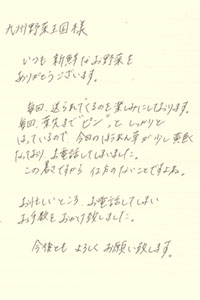 九州野菜王国様
いつも新鮮なお野菜を
ありがとうございます。
毎回、送られてくるのを楽しみにしております。
毎回、葉先まで"ピン"と しっかりと
はっているので 今回のほうれん草が少し黄色く
なっており、お電話してしまいました。
この暑さですから 仕方のないことですよね。
お忙しいところ、お電話してしまい
お手数をおかけ致しました。
今後とも よろしくお願い致します。